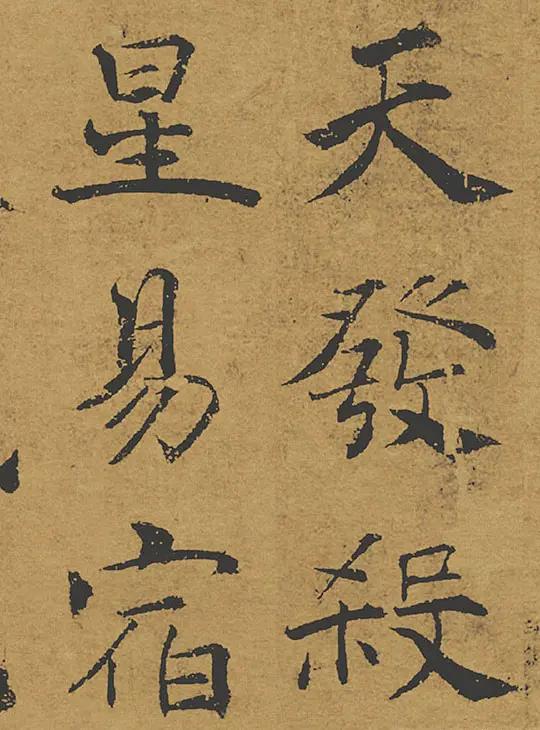 天發殺
星易宿